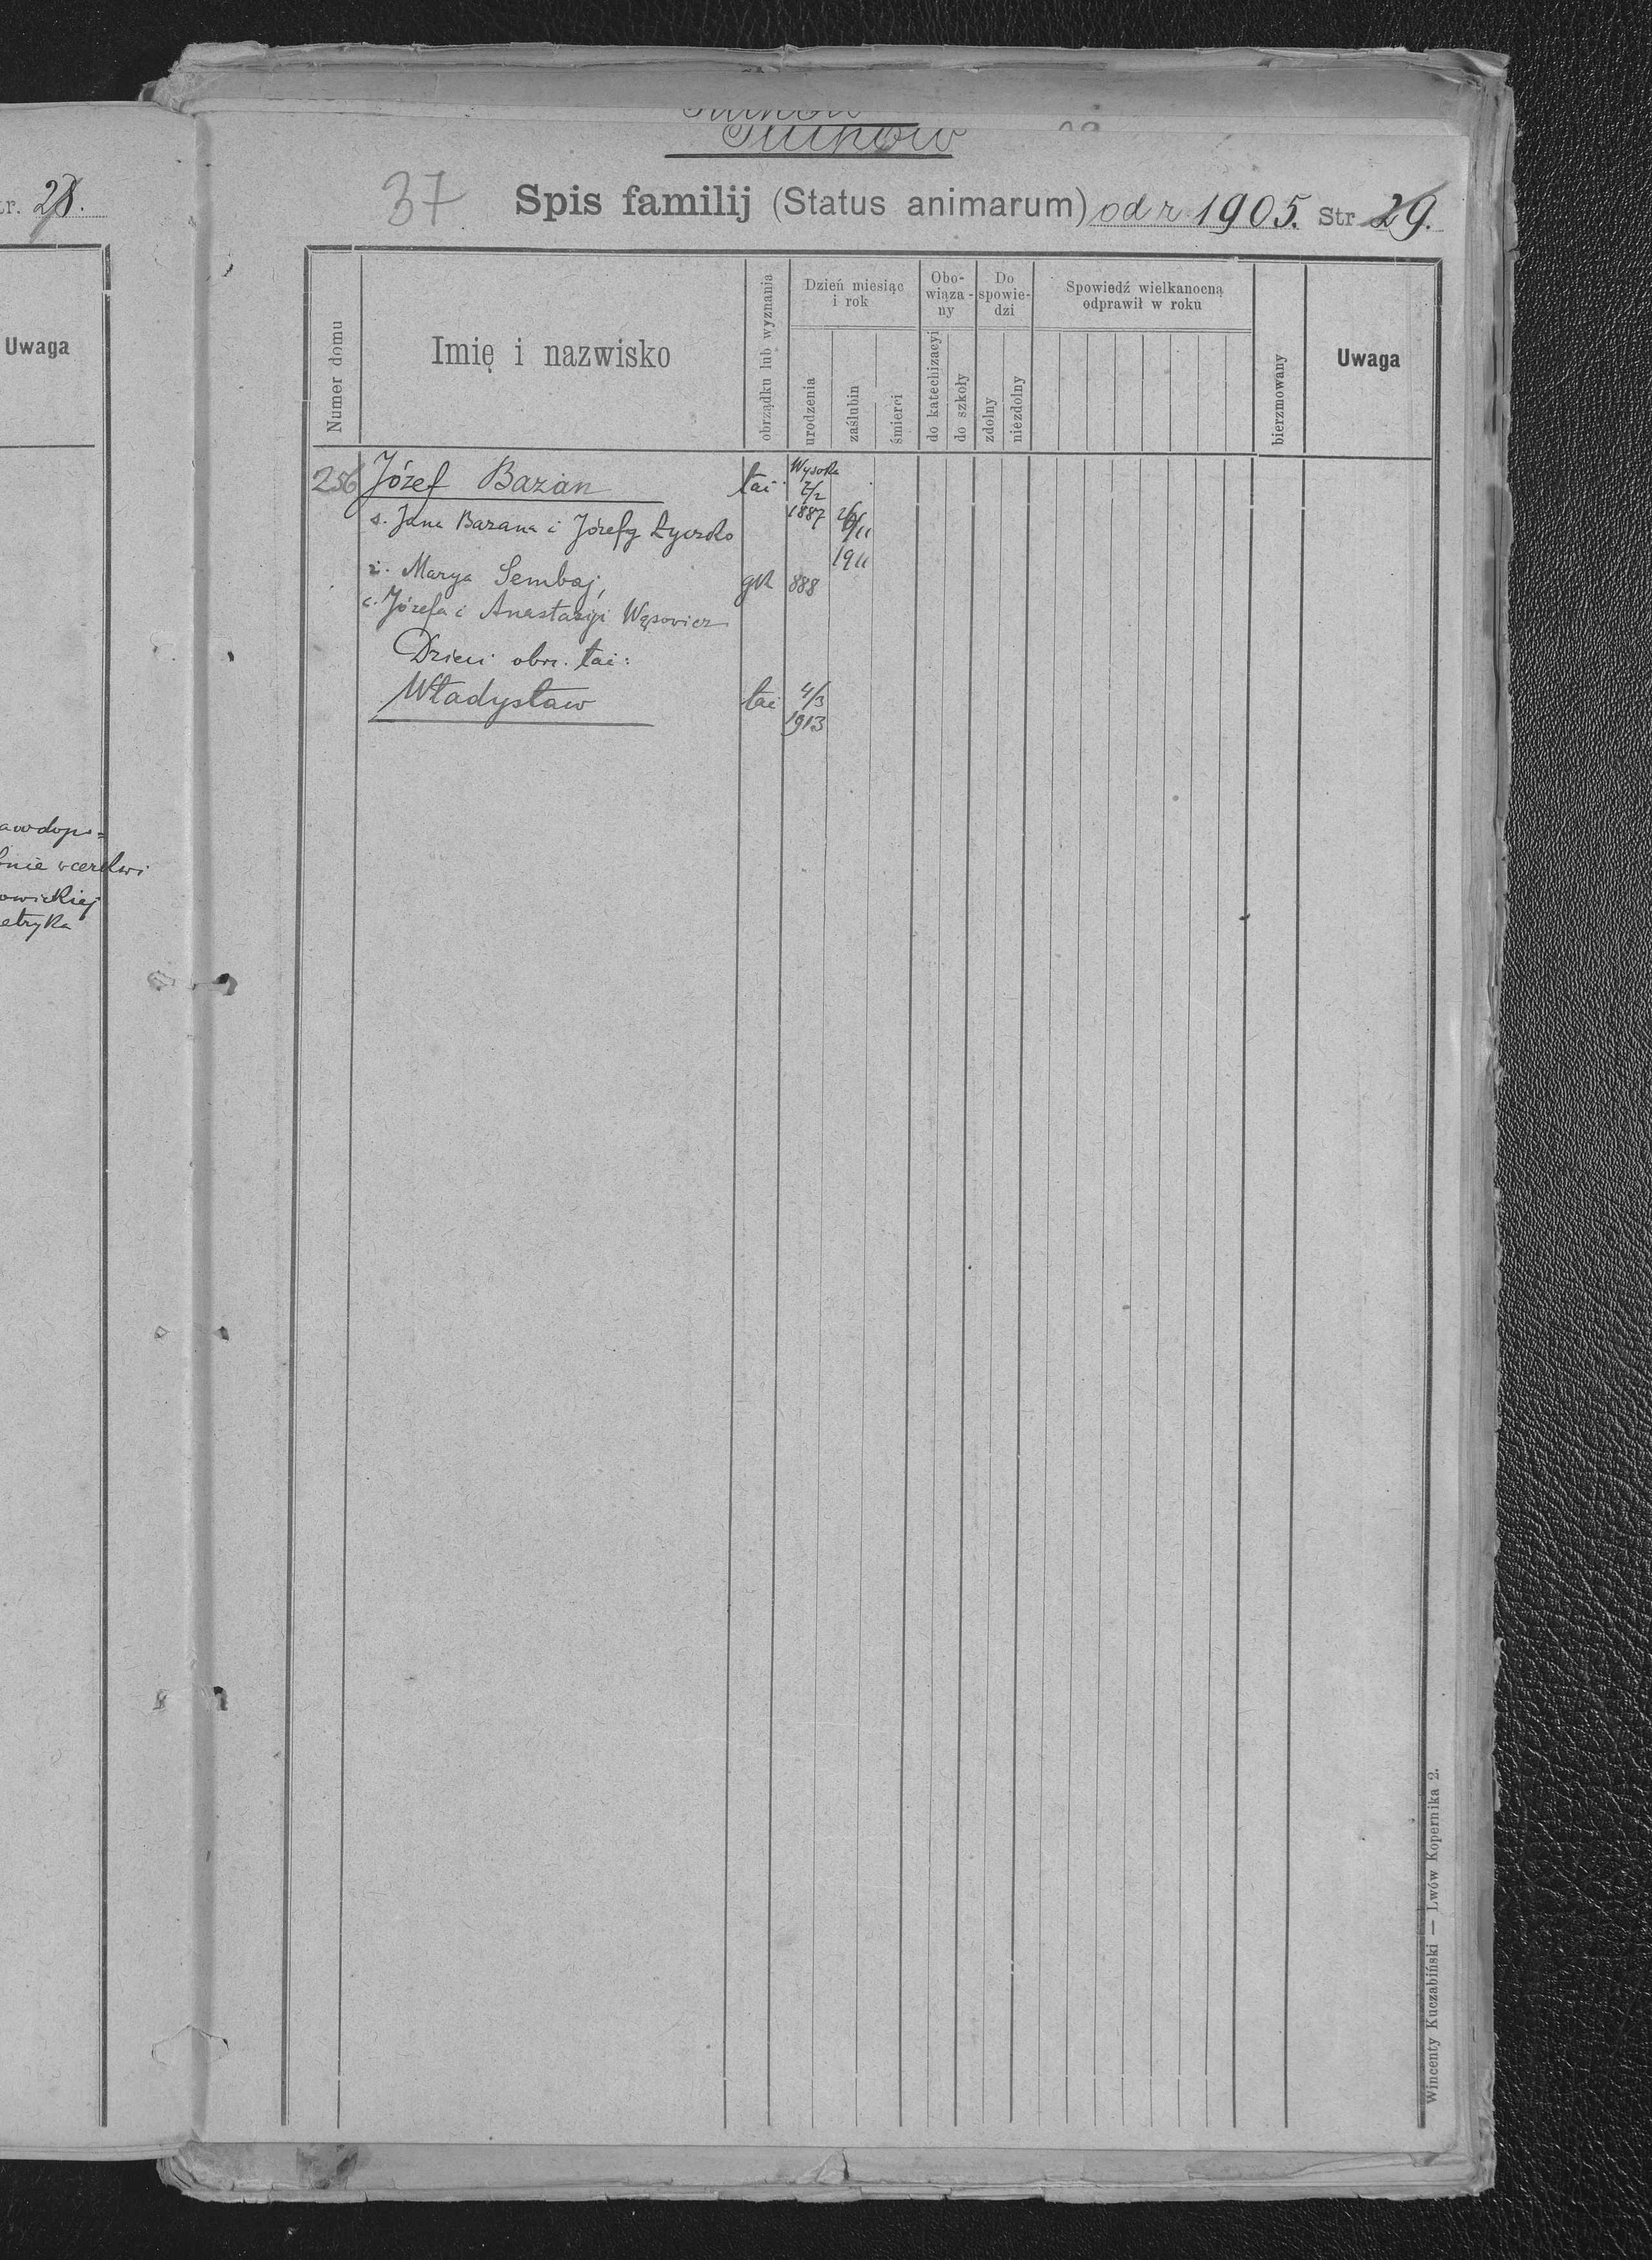 tr. 28.
Uwaga
awdopo=
bnie w cerkwi
owickiej
etryka
Tuchów
37 Spis familij (Status animarum) od r. 1905. Str 29.
Numer domu
Imię i nazwisko
obrządku lub wyznania
Dzień miesiąc
i rok
urodzenia
zaślubin
śmierci
Obo-
wiąza-
ny
do katechizacyi
do szkoły
Do
spowie-
dzi
zdolny
niezdolny
Spowiedź wielkanocną
odprawił w roku
bierzmowany
Uwaga
256 Józef Bazan łać Wysoka
7/2
s. Jana Bazana i Józefy Łyczko 1887
1911
ż. Marya Sembaj, gk 888
c. Józefa i Anastazyi Wąsowicz
Dzieci obrz. łać:
Władysław łać 4/3
1913
Wincenty Kuczabiński — Lwów Kopernika 2.